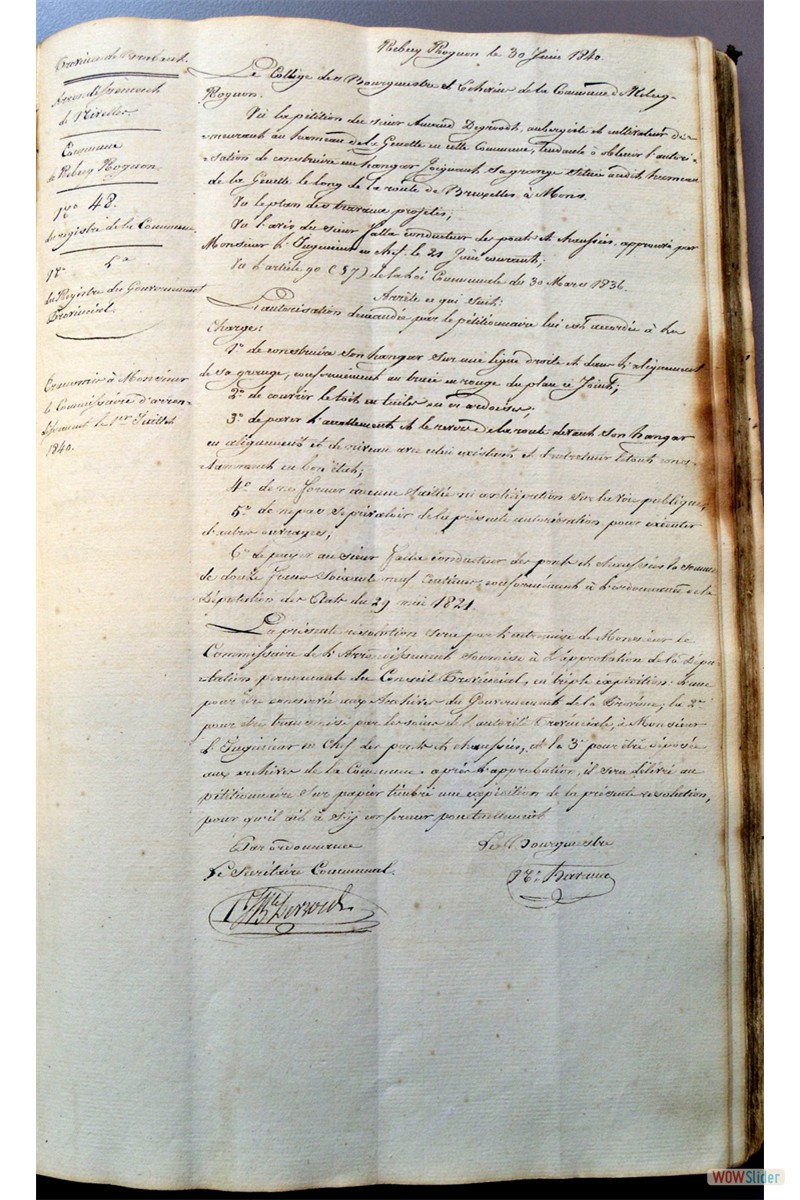 Province de Brabant.
Arrondissement
de Nivelles.
Commune
de Rebecq Rognon.
N° 48.
du registre de la Commune.
N°
du Registre du Gouvernement
Provincial.
Transmis à Monsieur
le Commissaire d'arron-
dissement le 1er Juillet
1840.
Rebecq Rognon le 30 Juin 1840.
Le Collége des Bourguestre et Echevins de la Commune de Rebecq-
Rognon.
Vu la pétition du sieur Amand Degroodt, aubergiste et cultivateur de-
meurant au hameau de la Genette en cette Commune, tendante à obtenir l'autori-
sation de construire un hangar joignant sa grange située audit hameau
de la Genette le long de la route de Bruxelles à Mons.
Vu le plan des travaux projetés;
Vu l'avis du sieur Jalla conducteur des ponts et chaussées, approuvé par
Monsieur l'Ingénieur en chef le 21 Juin courant;
Vu l'article 90 (§ 7) de la loi Communale du 30 Mars 1836.
Arrête ce qui suit:
L'autorisation demandée par le pétitionnaire lui est accordée à la
charge:
1° de construire son hangar sur une ligne droite et dans l'alignement
de sa grange, conformément au tracé en rouge du plan ci joint;
2° de couvrir le toit en tuiles ou en ardoises;
3° de paver l'accottement et le revers de la route devant son hangar
en alignement et de niveau avec celui existant et d'entretenir le tout cons-
tamment en bon état;
4° de ne former aucune saillie ni anticipation sur la voie publique;
5° de ne pas se prévaloir de la présente autorisation pour exécuter
d'autres ouvrages;
6° de payer au sieur Jalla conducteur des ponts et chaussées la somme
de douze francs soixante neuf centimes, conformément à l'ordonnance de la
Députation des Etats du 29 mai 1821.
La présente résolution sera par l'entremise de Monsieur le
Commissaire de l'Arrondissement soumise à l'approbation de la Dépu-
tation permanente du Conseil Provincial, en triple expédition: l'une
pour être conservée aux Archives du Gouvernement de la Province; la 2e
pour être transmise par les soins de l'autorité Provinciale, à Monsieur
l'Ingénieur en Chef des ponts et chaussées, et la 3e pour être déposée
aux archives de la Commune. après l'approbation, il sera délivré au
pétitionnaire sur papier timbré une expédition de la présente résolution,
pour qu'il ait à s'y conformer ponctuellement
Par ordonnance
Le Secrétaire Communal.
Le Bourguestre
WOWSlider